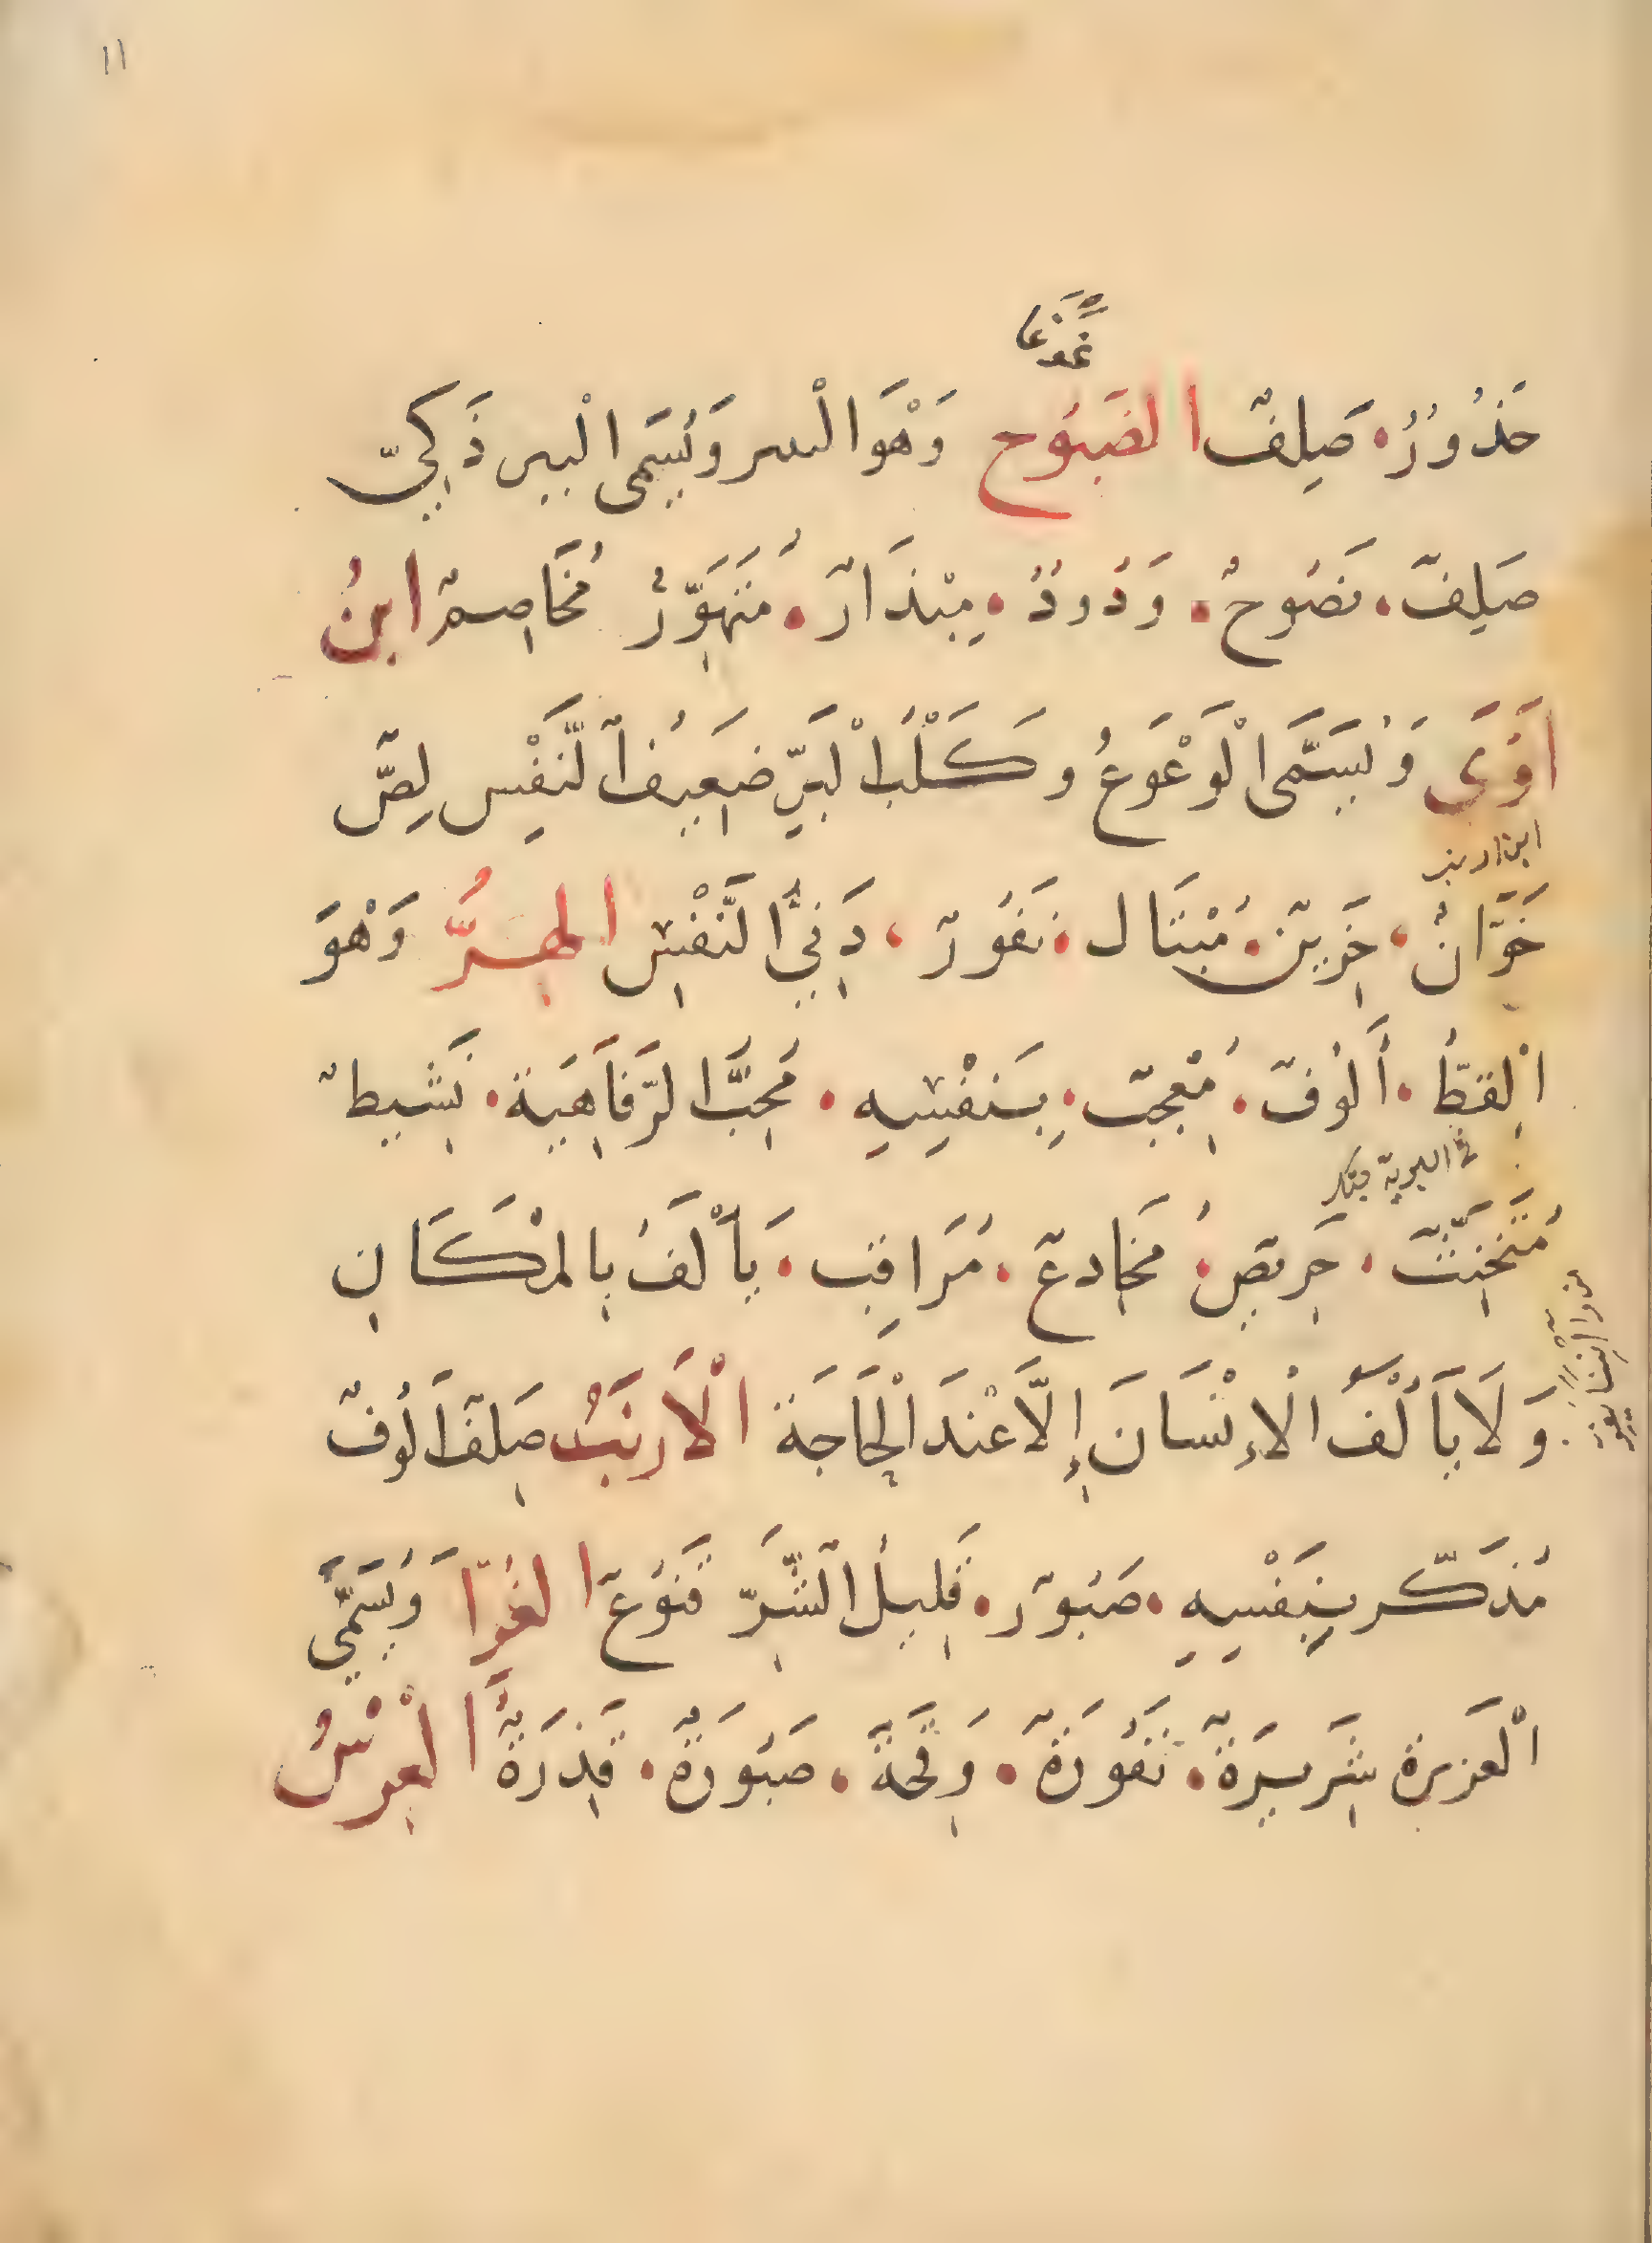 ١١
حَذُورٌ. صَلِفٌ الضَبُوح وَهْوَ الْببر وَيُسَمى الْبير ذَكِيّ
صَلِفٌ. نَصُوحٌ. وَدُودٌ. مِبْذَارٌ. مُتَهَوِّرٌ مُخَاصِمٌ ابنُ
اَوَى وَيُسَمَّى الْوَعْوَعُ وكَلْبُ الْبَرِّ ضَعِيفُ النَّفْسِ لِصٌّ
خَوَّانٌ. حَزِينٌ. مُبْتَال. نَفُورٌ. دَنِيُّ النَّفْسِ الهِرُّ وَهْوَ
الْقِطُّ. أَلُوفٌ. مُعْجِبٌ. بِنَفْسِهِ. مُحِبُّ الرَّفَاهِيَة. نَشِيطٌ
مُتَخَنِّثٌ. حَرِيصٌ. مُخَادِعٌ. مُرَاقِب. يَأْلَفُ بِالْمَكَانِ
وَلَا يَأْلَفُ الْاءِنْسَانَ إِلَّا عْنَدَ الْحَاجَة الْأَرنَبُ صَلِفٌ اَلُوفٌ
مُذَكّر بِنَفْسِهِ. صَبُورٌ. قَلِيلُ الشَّرِّ قَنُوعٌ الغُرّا وَيُسَمَّي
الْعَزيزة شَرِيرَةٌ. نَفُورَةٌ. وَقِحَةٌ. صَبُورَةٌ. قَذِرَةٌ الْعِرْسُ